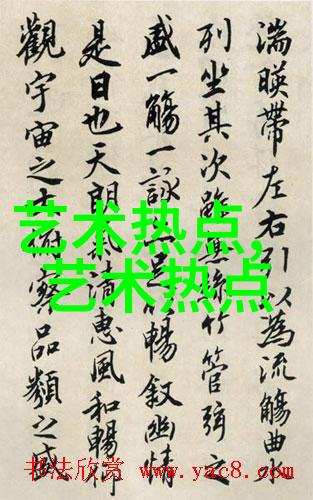 湍暎帶左右引以為流觴曲水
列坐其次雖無絲竹管弦之
盛一觴一詠亦足以暢敘幽情
是日也天朗氣清惠風和暢仰
觀宇宙之大俯察品類之盛
艺术热点,
艺术热点
书法欣赏 www.yac8.com